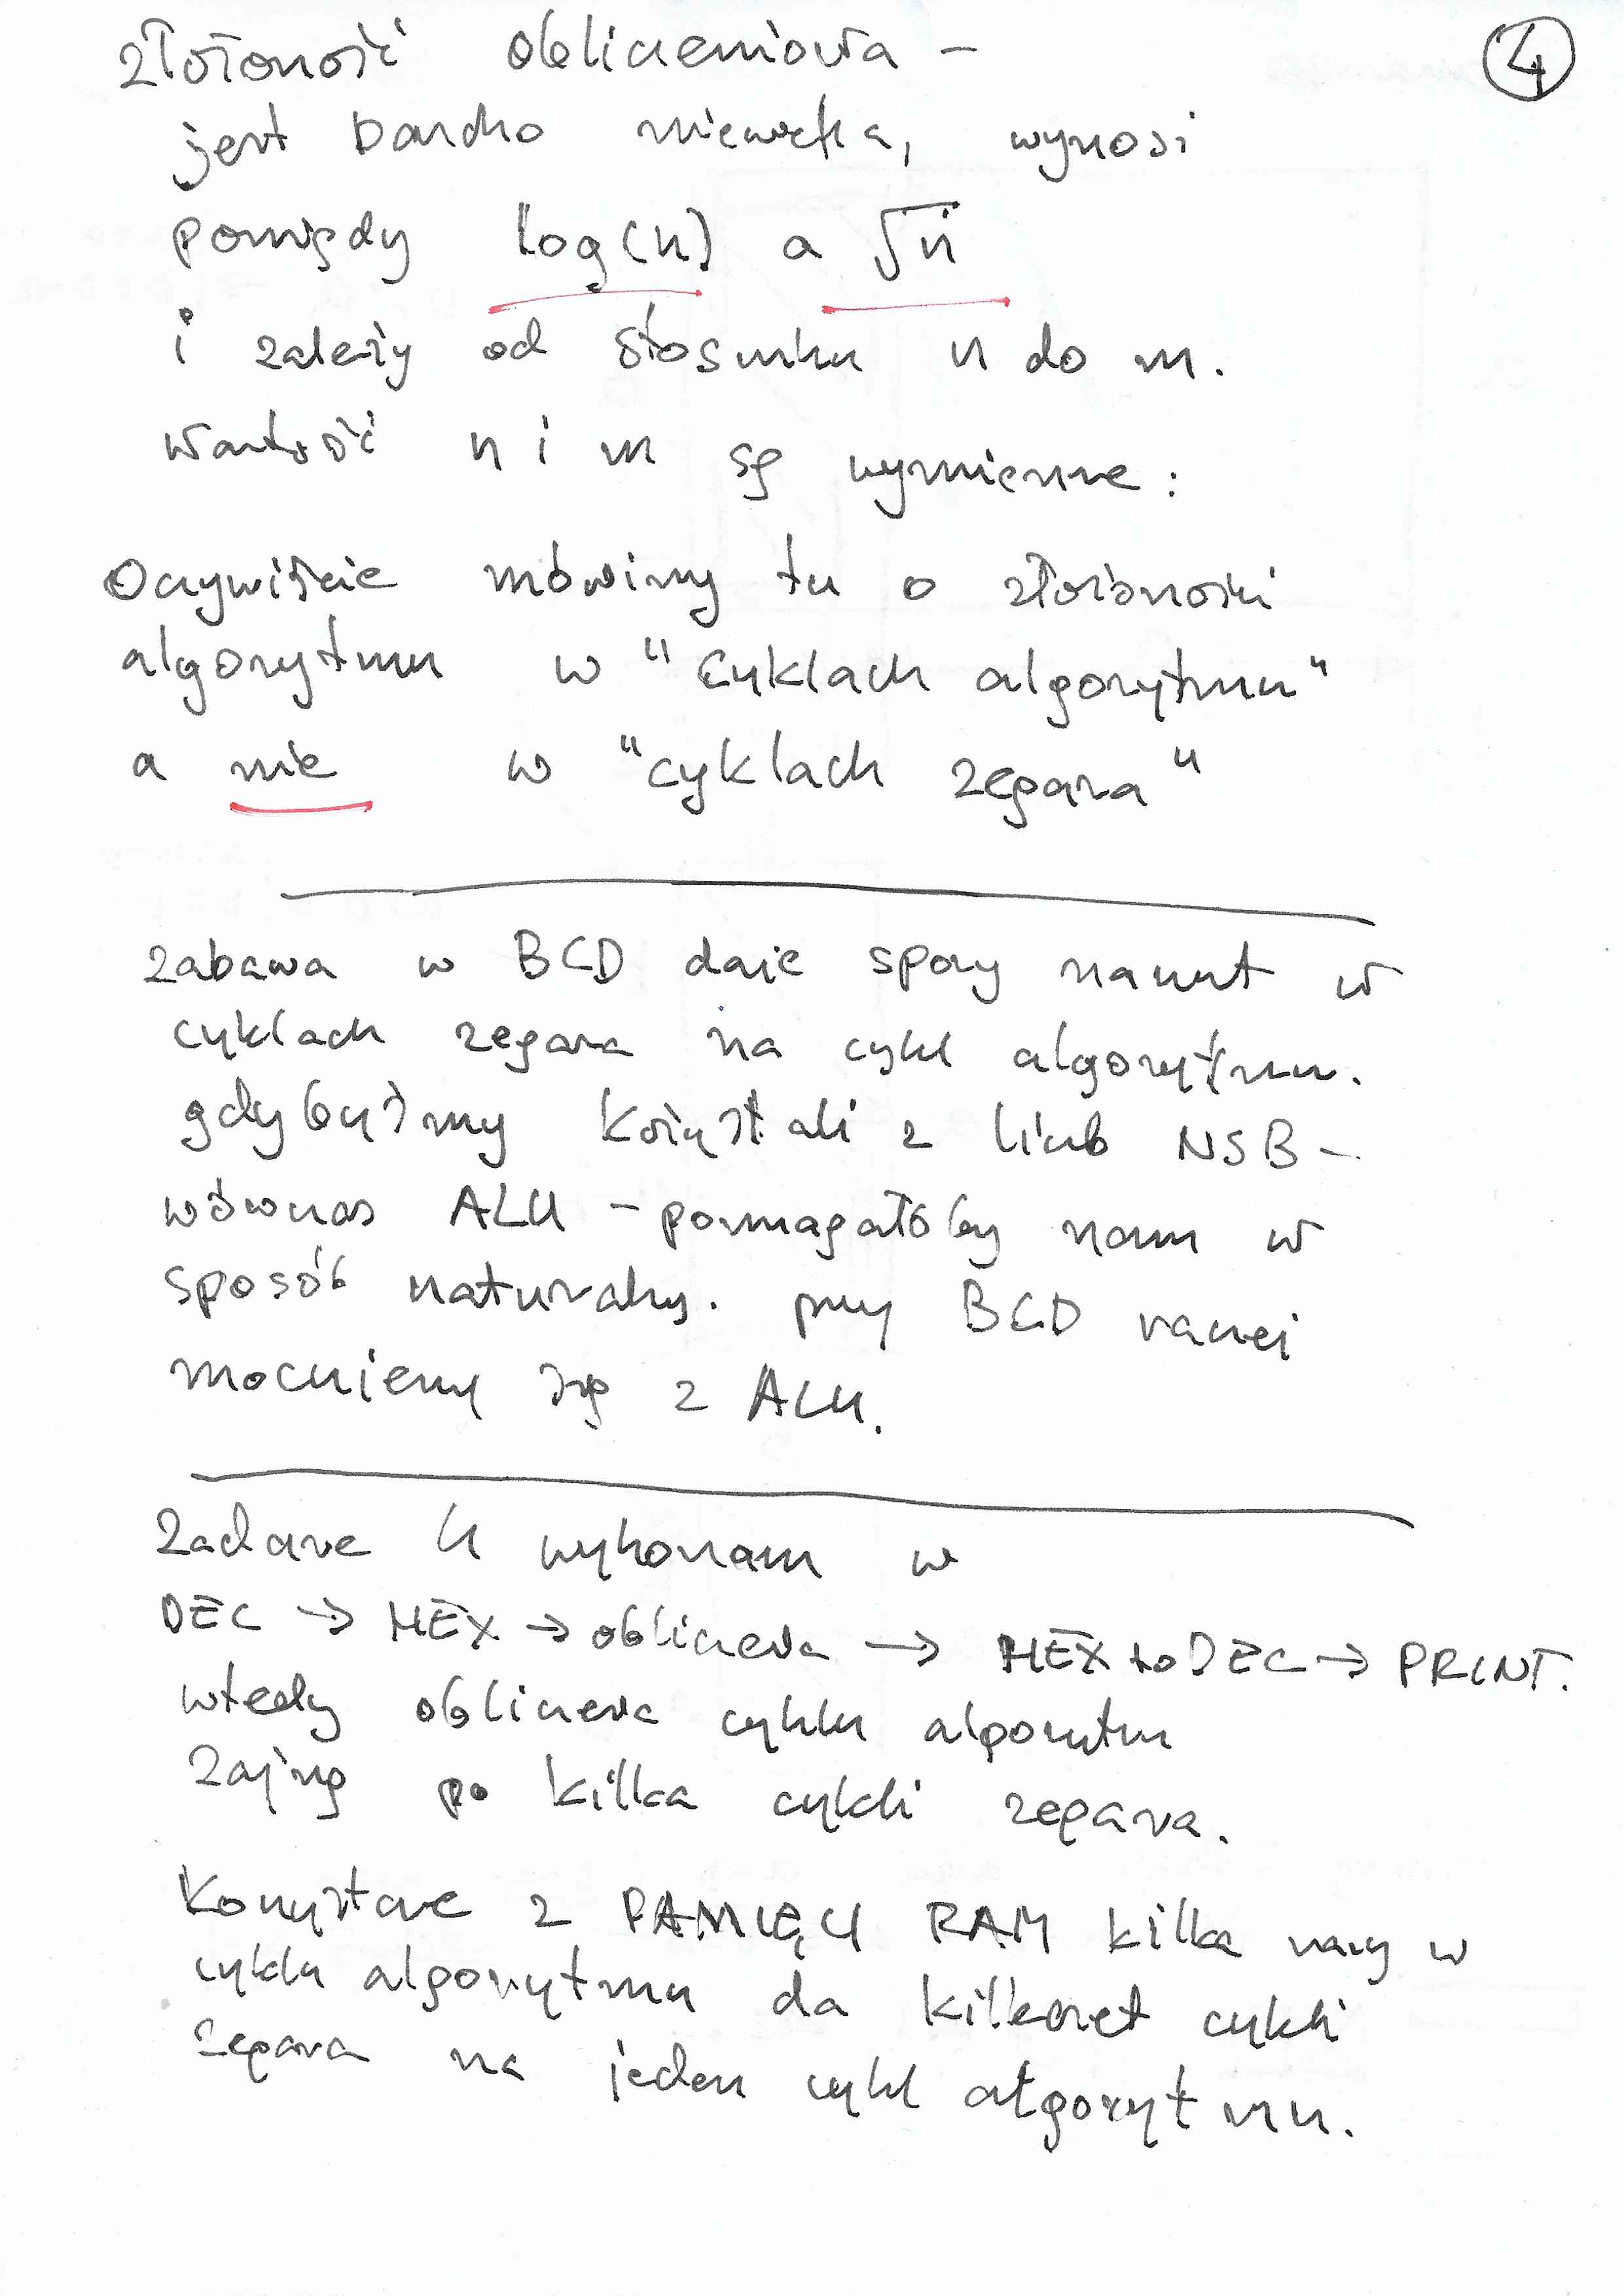 ④
złożoność obliczeniowa –
jest bardzo niewielka, wynosi
pomiędy log(n) a √n
i zależy od stosunku n do m.
wartość n i m są wymienne:
Oczywiście mówimy tu o złożoności
algorytmu w "cyklach algorytmu"
a nie w "cyklach zegara"
zabawa w BCD daje spory narzut w
cyklach zegara na cykl algorytmu.
gdybyśmy kożystali z liczb NSB –
wówczas ALU – pomagałoby nam w
sposób naturalny. przy BCD raczej
mocujemy się z ALU.
Zadanie 4 wykonam w
DEC → HEX → obliczenia → HEX to DEC → PRINT.
wtedy obliczenia cyklu algorytm
zajmą po kilka cykli zegara.
Korzystanie z PAMIĘCI RAM kilka razy w
cyklu algorytmu da kilkanaście cykli
zegara na jeden cykl algorytmu.